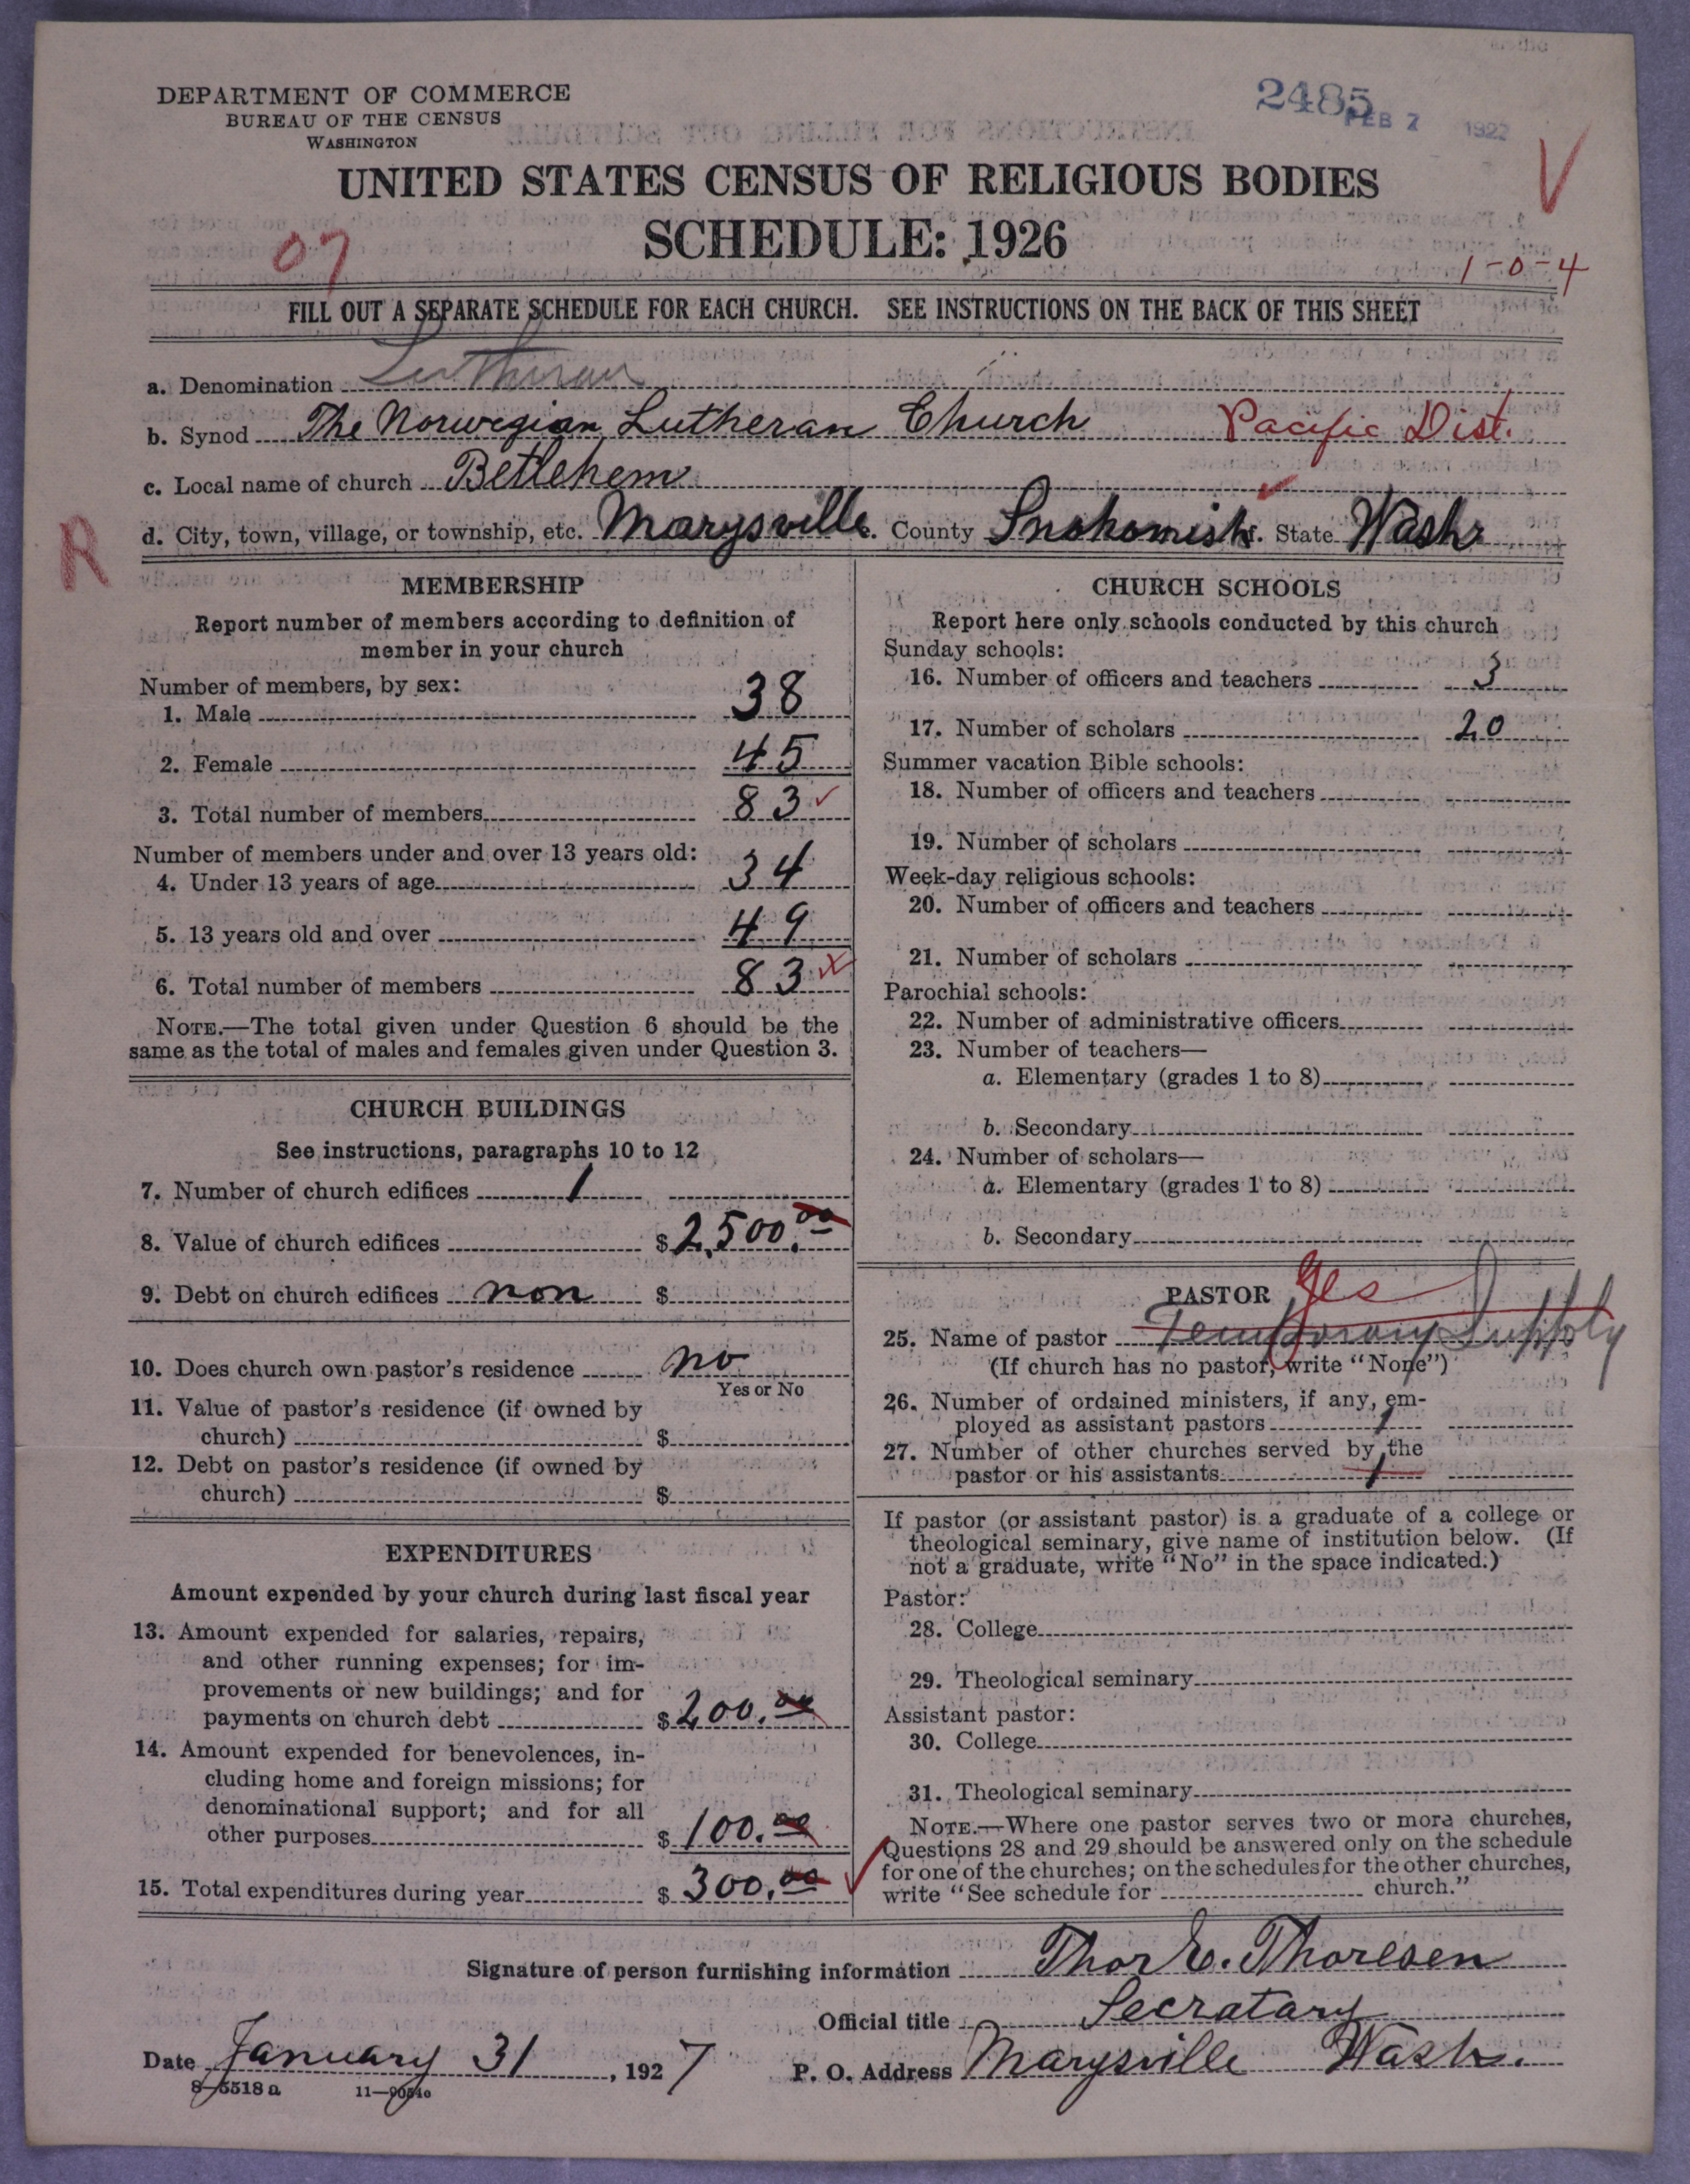 DEPARTMENT OF COMMERCE
BUREAU OF THE CENSUS
WASHINGTON
2485
FEB 7 1927
UNITED STATES CENSUS OF RELIGIOUS BODIES
SCHEDULE: 1926
07
V
1-0-4
FILL OUT A SEPARATE SCHEDULE FOR EACH CHURCH. SEE INSTRUCTIONS ON THE BACK OF THIS SHEET
a. Denomination Lutheran
b. Synod The Norwegian Lutheran Church Pacific Dist.
c. Local name of church Betlehem
d. City, town, village, or township, etc. Marysville e. County Snohomish f. State Wash
R
MEMBERSHIP
Report number of members according to definition of
member in your church
Number of members, by sex:
1. Male 38
2. Female 45
3. Total number of members 83
Number of members under and over 13 years old:
4. Under 13 years of age 34
5. 13 years old and over 49
6. Total number of members 83
NOTE.—The total given under Question 6 should be the
same as the total of males and females given under Question 3.
CHURCH BUILDINGS
See instructions, paragraphs 10 to 12
7. Number of church edifices 1
8. Value of church edifices $ 2,500.00
9. Debt on church edifices non $
10. Does church own pastor's residence no
Yes or No
11. Value of pastor's residence (if owned by
church) $
12. Debt on pastor's residence (if owned by
church) $
EXPENDITURES
Amount expended by your church during last fiscal year
13. Amount expended for salaries, repairs,
and other running expenses; for im-
provements or new buildings; and for
payments on church debt $ 200.00
14. Amount expended for benevolences, in-
cluding home and foreign missions; for
denominational support; and for all
other purposes $ 100.00
15. Total expenditures during year $ 300.00
CHURCH SCHOOLS
Report here only schools conducted by this church
Sunday schools:
16. Number of officers and teachers 3
17. Number of scholars 20
Summer vacation Bible schools:
18. Number of officers and teachers
19. Number of scholars
Week-day religious schools:
20. Number of officers and teachers
21. Number of scholars
Parochial schools:
22. Number of administrative officers
23. Number of teachers—
a. Elementary (grades 1 to 8)
b. Secondary
24. Number of scholars—
a. Elementary (grades 1 to 8)
b. Secondary
PASTOR yes
25. Name of pastor Temporary Supply
(If church has no pastor, write "None")
26. Number of ordained ministers, if any, em-
ployed as assistant pastors 1
27. Number of other churches served by the
pastor or his assistants 1
If pastor (or assistant pastor) is a graduate of a college or
theological seminary, give name of institution below. (If
not a graduate, write "No" in the space indicated.)
Pastor:
28. College
29. Theological seminary
Assistant pastor:
30. College
31. Theological seminary
NOTE.—Where one pastor serves two or more churches,
Questions 28 and 29 should be answered only on the schedule
for one of the churches; on the schedules for the other churches,
write "See schedule for church."
Signature of person furnishing information Thor E. Thoresen
Official title Secratary
Date January 31, 1927 P. O. Address Marysville Wash.
8-5518a 11-90540